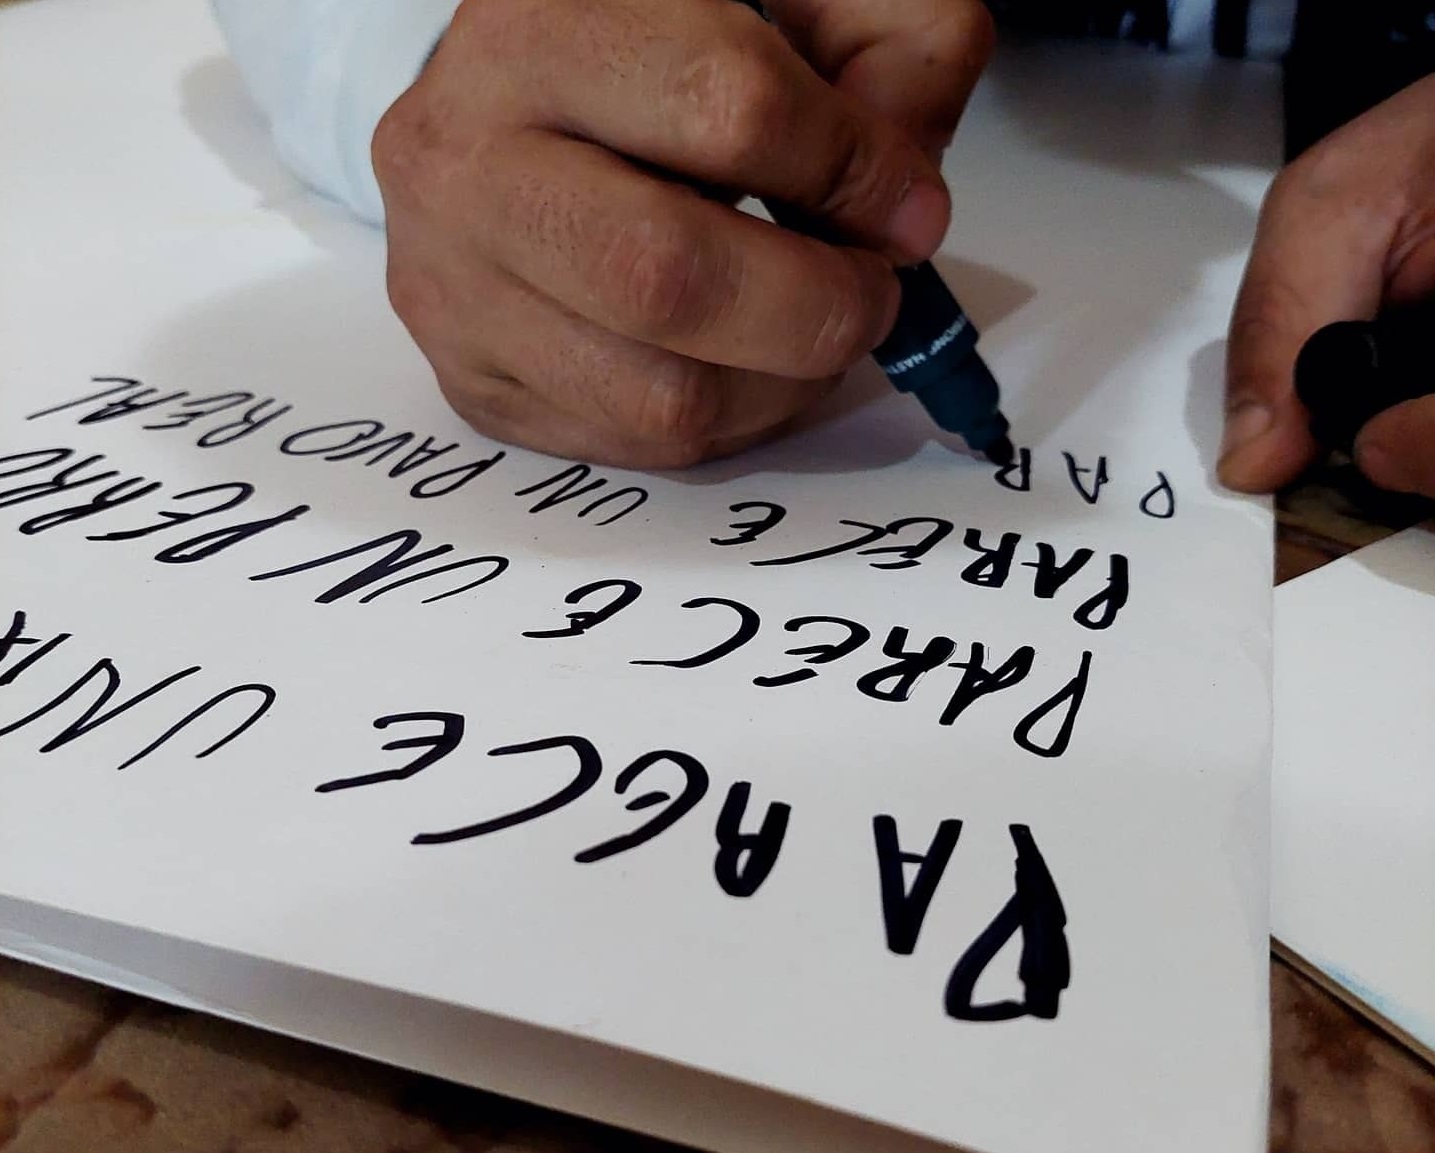 PARECE UNA
PARECE UN PERRO
PARECE UN PAVO REAL
PAR